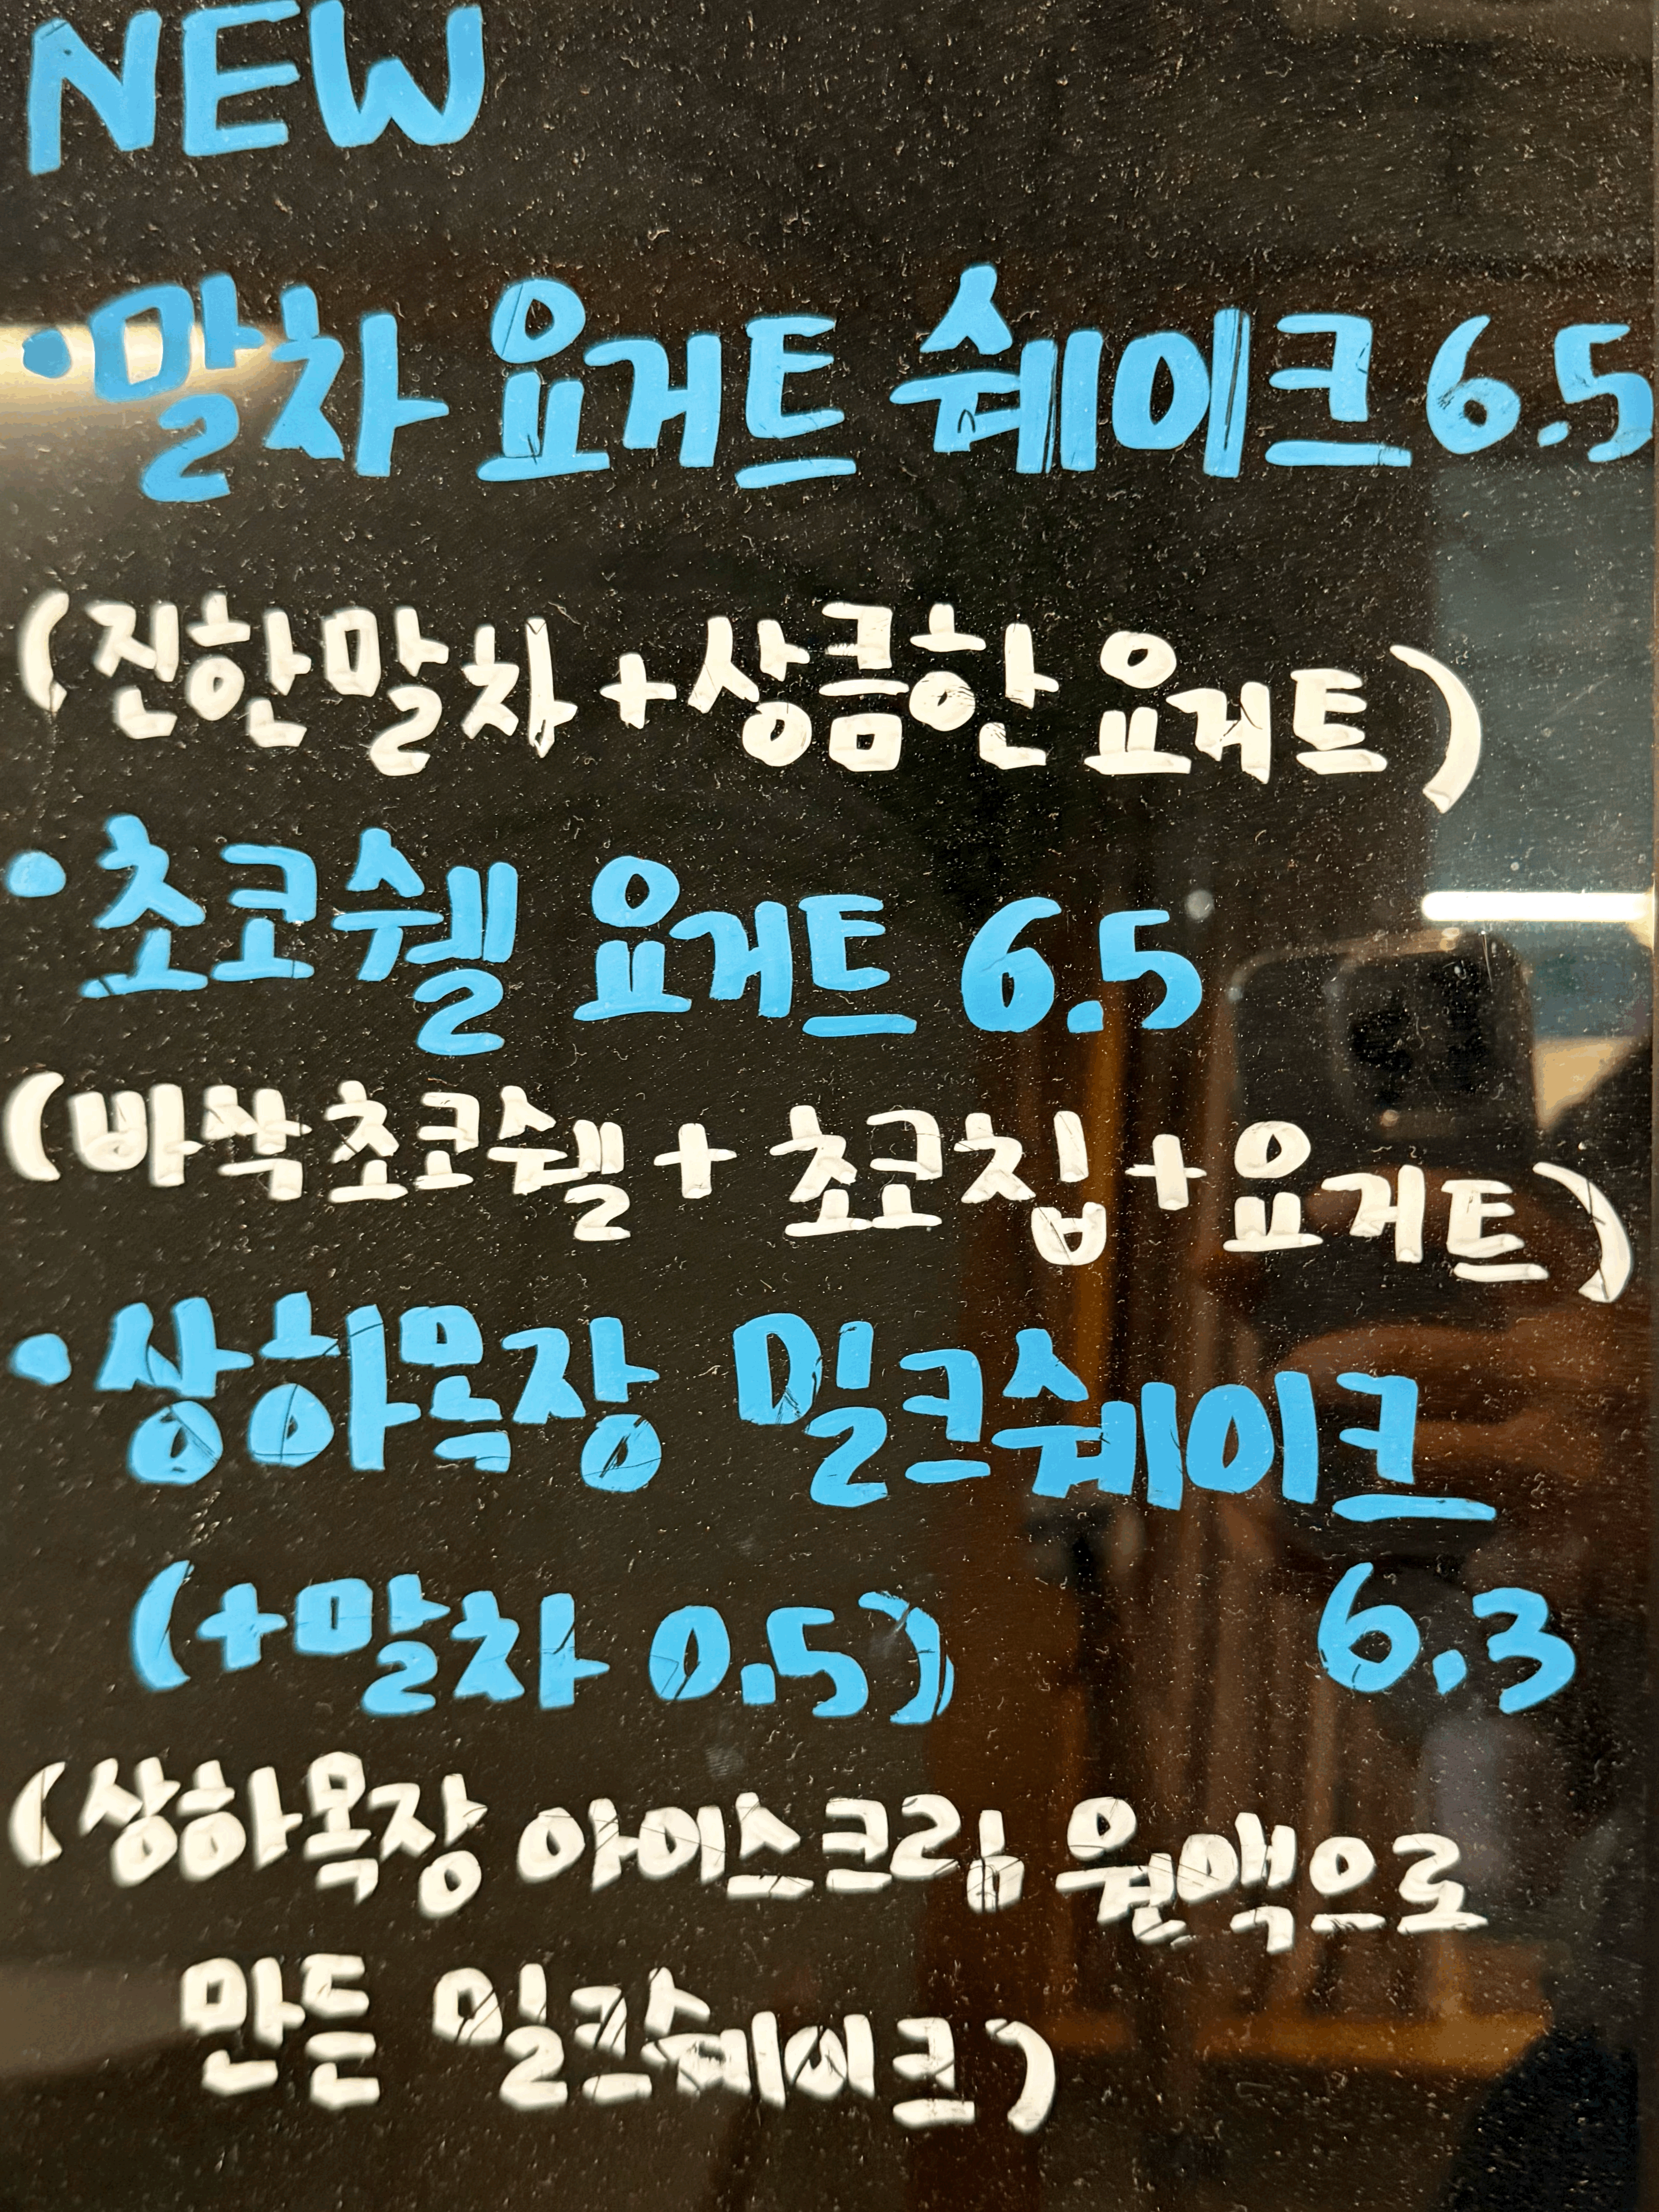 NEW
•말차 요거트 쉐이크 6.5
(진한말차+상큼한 요거트)
•초코쉘 요거트 6.5
(바싹초코쉘+초코칩+요거트)
•상하목장 밀크쉐이크
(+말차 0.5) 6.3
(상하목장 아이스크림 원액으로
만든 밀크쉐이크)